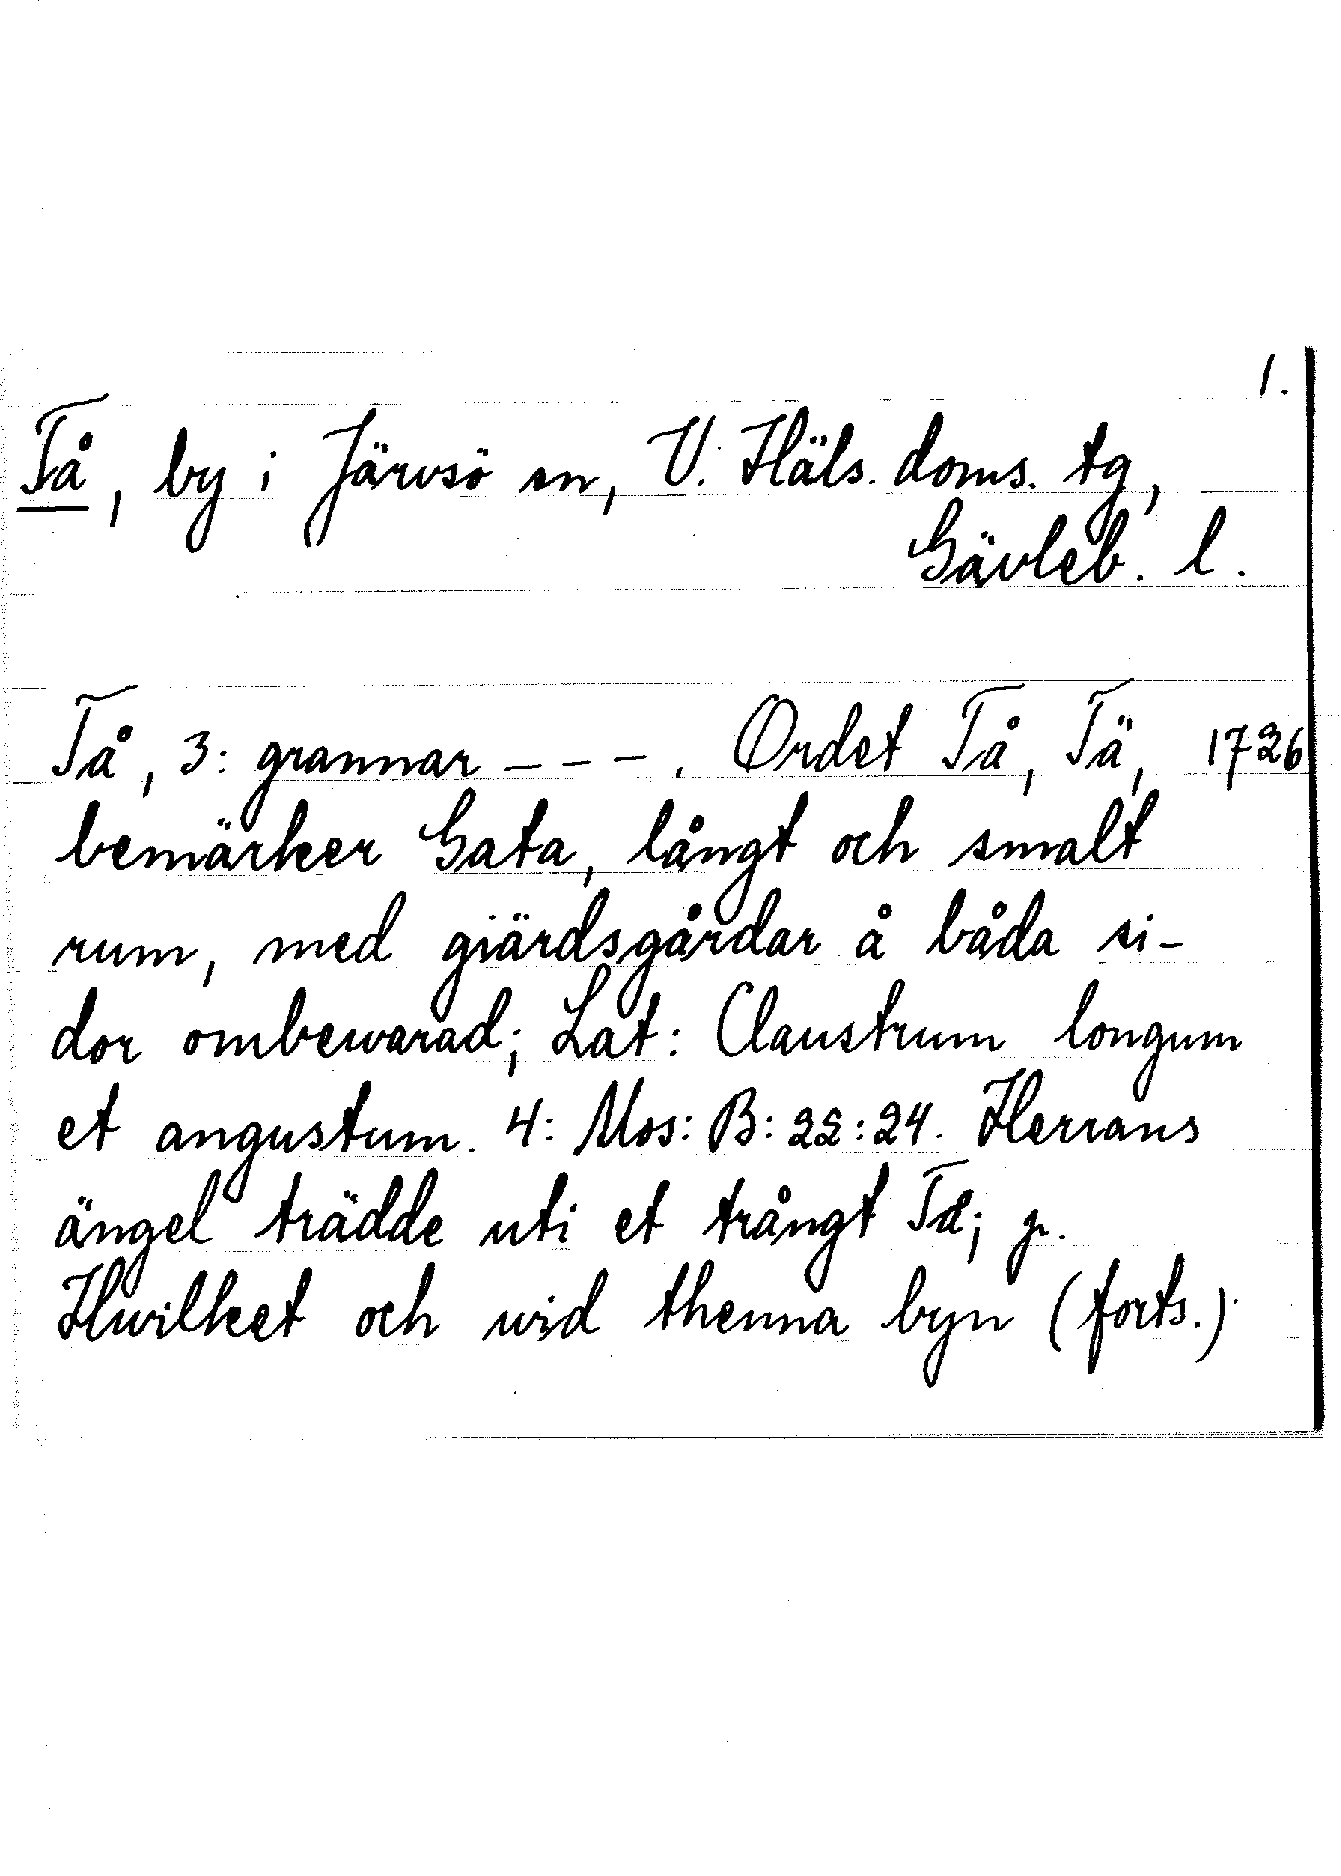 1.
Tå, by i Järvsö sn, V. Häls. doms. tg,
Gävleb. l.
Tå, 3: grannar - - - . Ordet Tå, Tä, 1726
bemärker Gata, långt och smalt
rum, med giärdsgårdar å båda si-
dor ombewarad; Lat: Claustrum longum
et angustum. 4: Mos: B: 22:24. Herrans
ängel trädde uti et trångt Tä; p.
Hwilket och wid thenna byn (forts.)